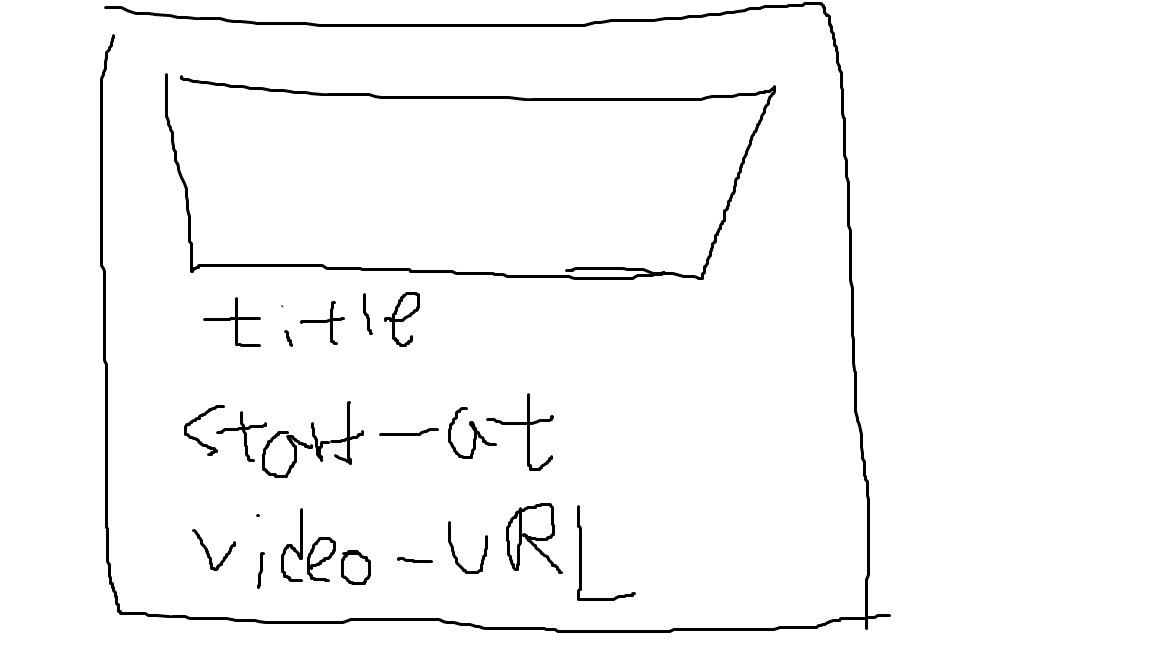 title
start-at
video-URL